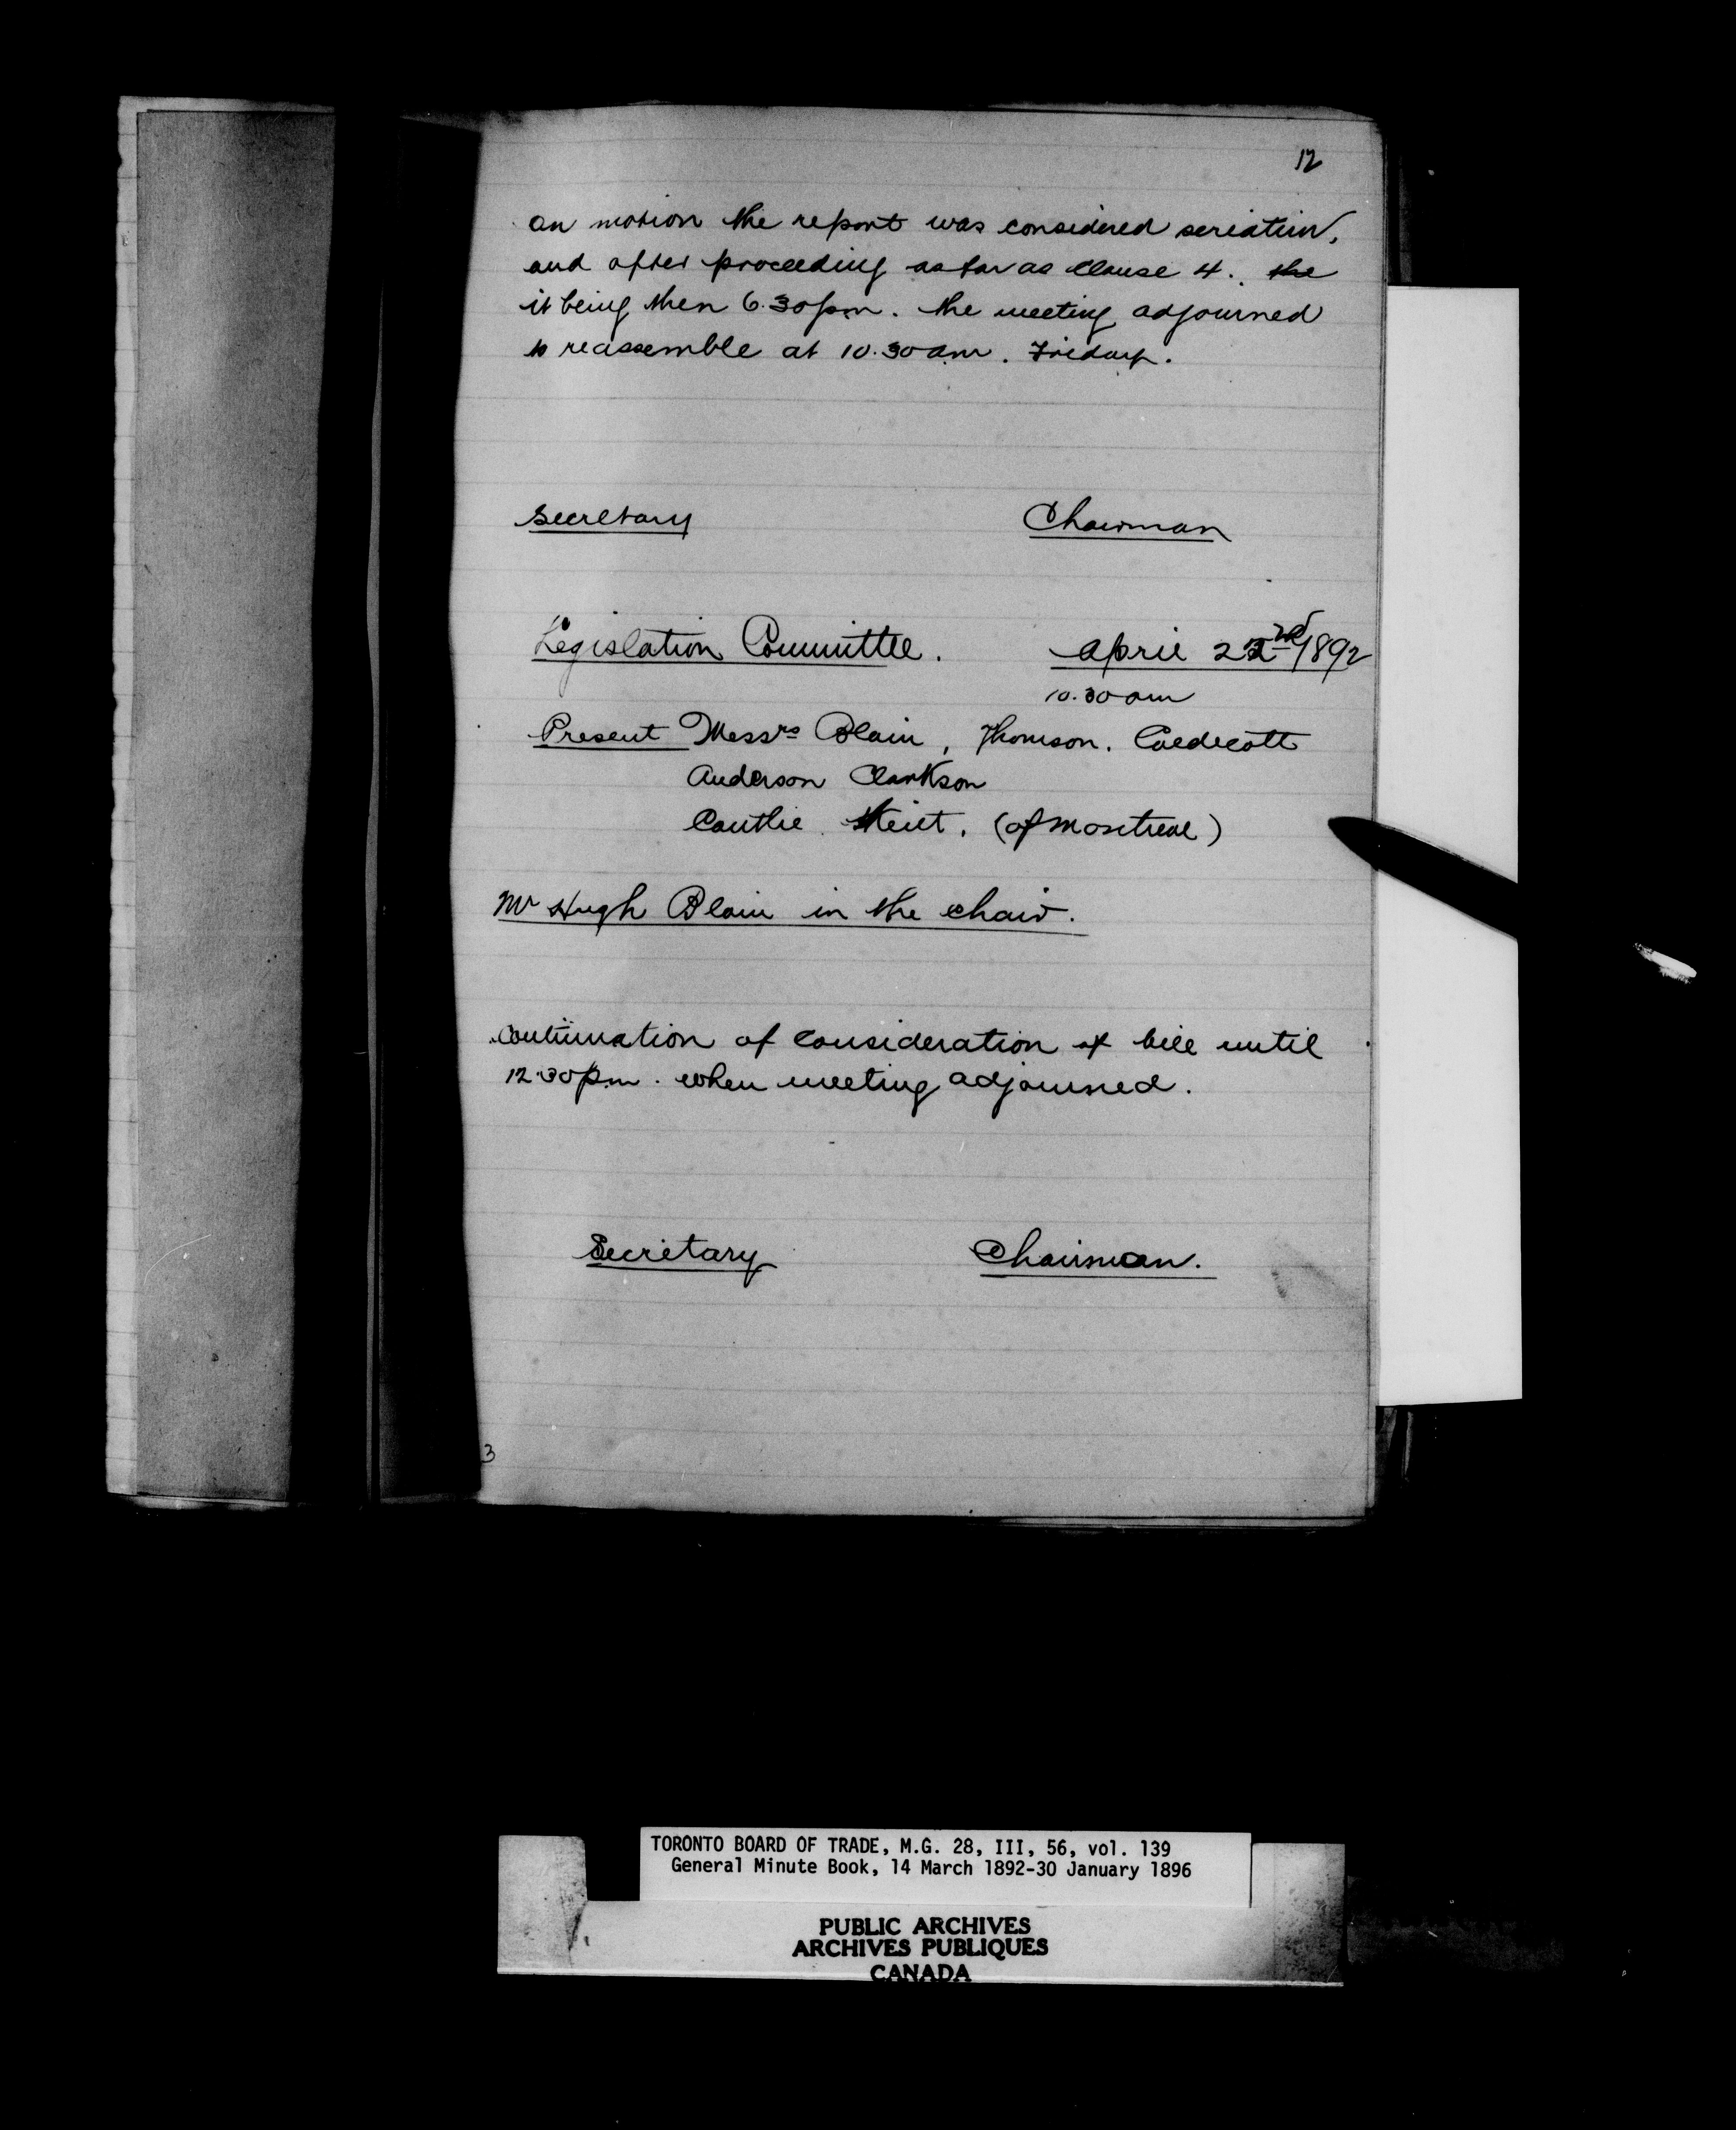 12
on motion the report was considered seriatim,
and after proceeding as far as Clause 4. the
it being then 6.30 pm. the meeting adjourned
to reassemble at 10.30 am. Friday.
Secretary Chairman
Legislation Committee. April 22nd 1892
10.30 am
Present Messrs Blain, Thomson, Caldecott
Anderson Clarkson
Cantlie (of Montreal)
Mr Hugh Blain in the chair.
Continuation of consideration of bill until
12.30 pm. when meeting adjourned.
Secretary Chairman.
3
TORONTO BOARD OF TRADE, M.G. 28, III, 56, vol. 139
General Minute Book, 14 March 1892-30 January 1896
PUBLIC ARCHIVES
ARCHIVES PUBLIQUES
CANADA